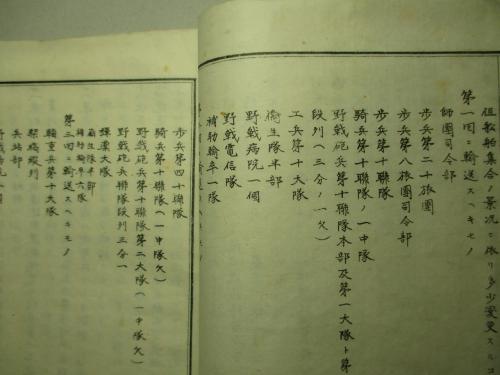 但教船集合ノ景況ニ依リ多少変更スルコ
第一回ニ輸送スヘキモノ
師團司令部
歩兵第二十旅團
歩兵第八旅團司令部
騎兵第十聯隊ノ一中隊
野戦砲兵第十聯隊本部及第一大隊ト第
段列（三分ノ一欠）
工兵第十大隊
衛生隊半部
野戦病院一個
野戦電信隊
補助輸卒一隊
歩兵第四十聯隊
騎兵第十聯隊（一中隊欠）
野戦砲兵第十聯隊第二大隊（一中隊欠）
野戦砲兵聯隊段列三分一
弾薬大隊
衛生隊半部
補助輸卒六隊
第三回ニ輸送スヘキモノ
輜重兵第十大隊
架橋縦列
兵站部
野戦病院一個